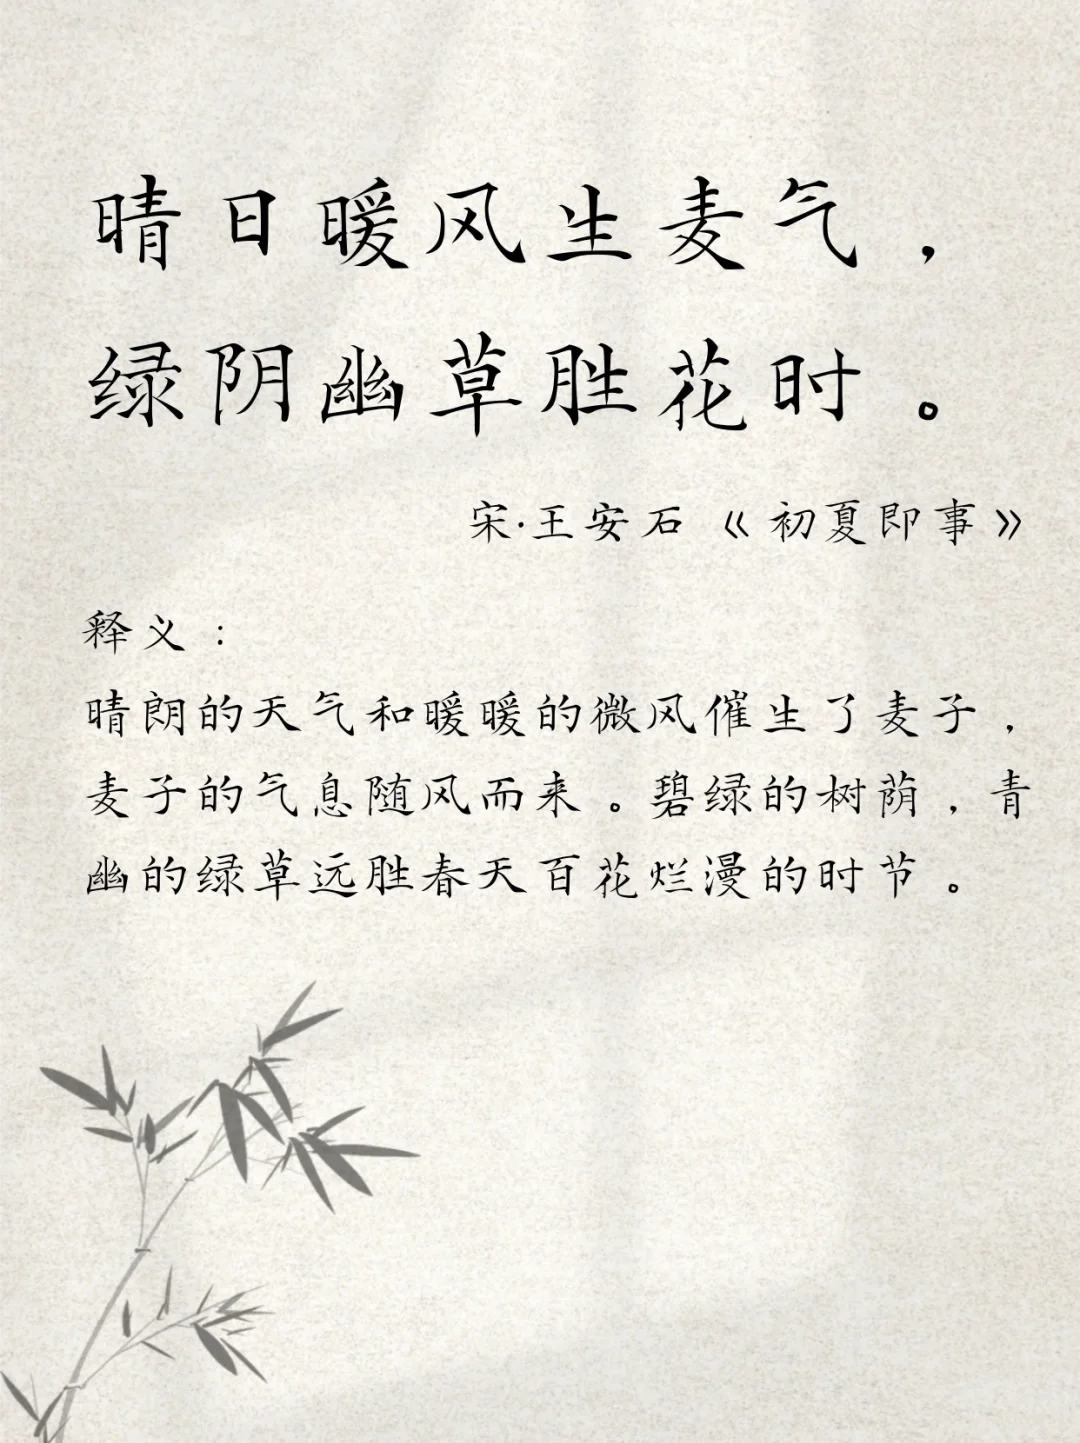 晴日暖风生麦气，
绿阴幽草胜花时。
宋·王安石《初夏即事》
释义：
晴朗的天气和暖暖的微风催生了麦子，
麦子的气息随风而来。碧绿的树荫，青
幽的绿草远胜春天百花烂漫的时节。